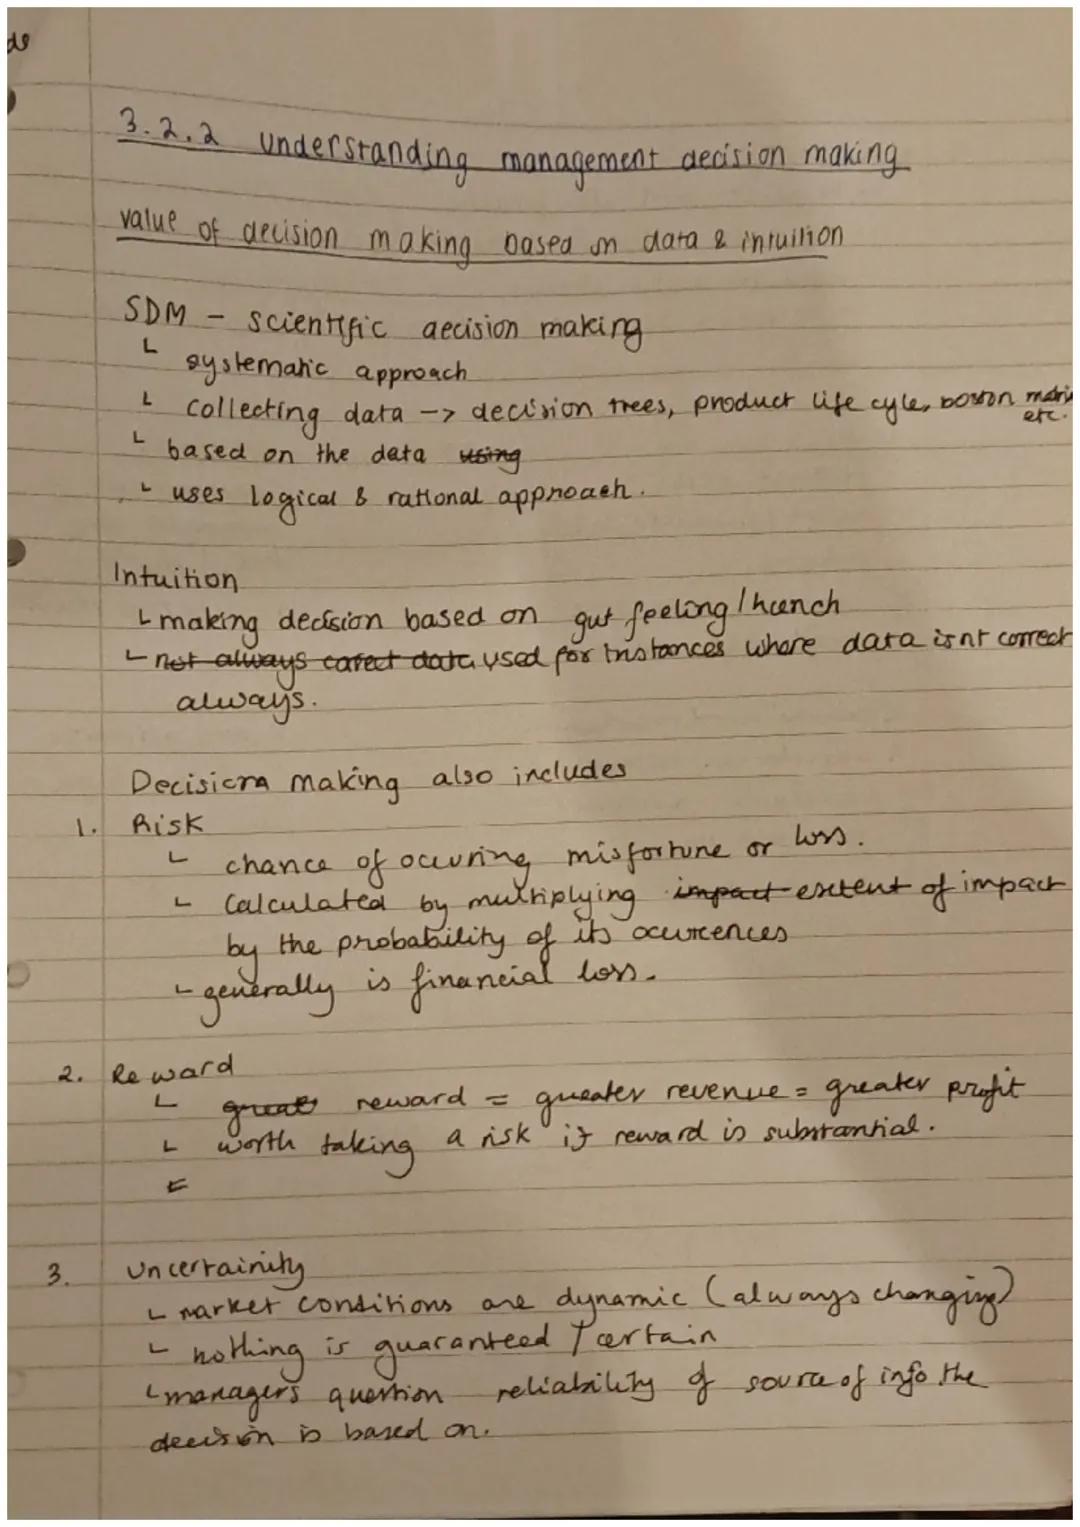 3.2.2 Understanding management decision making
value of decision making based on data & intuition
SDM - scientific decision making
systematic approach
collecting data -> decision trees, product life cyle, boston matrix
etc.
based on the data using
uses logical & rational approach.
Intuition
making decision based on gut feeling / hunch
not always correct data used for instances where data isnt correct
always.
Decision making also includes
1. Risk
chance of occuring misfortune or loss.
Calculated by multiplying impact extent of impact
by the probability of its ocurrences
generally is financial loss.
2. Reward
great reward = greater revenue = greater profit
worth taking a risk if reward is substantial.
3. Uncertainity
market conditions are dynamic (always changing)
nothing is guaranteed / certain
managers question reliability of source of info the
decision is based on.